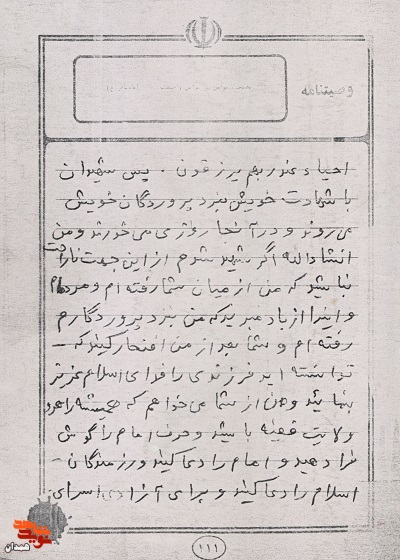 وصیتنامه
احیاء عند ربهم یرزقون . پس شهیدان
با شهادت خویش بنزد پروردگان خویش
می روند و در آنجا روزی می خورند و من
انشاءالله اگر شهید شدم از این جهت ناراحت
نباشید که من از میان شما رفته ام و مرده ام
و اینرا از یاد مبرید که من بنزد پروردگارم
رفته ام و شما بعد از من افتخار کنید که -
توانسته اید فرزندی را فدای اسلام عزیز
بنمائید و من از شما می خواهم که همیشه
ولایت فقیه باشید و حرف امام را گوش
فرا دهید و امام را دعا کنید و رزمندگان -
اسلام را دعا کنید و برای آزادی اسرای
۱۱۱
نوید شاهد
همدان